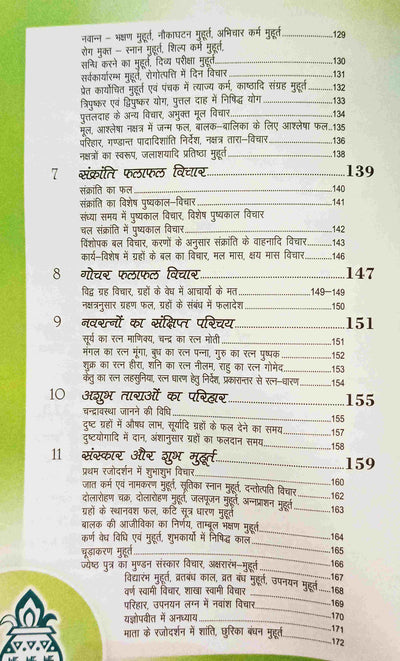 नवान्न – भक्षण मुहूर्त, नौकाघटन मुहूर्त, अभिचार कर्म मुहूर्त 129
रोग मुक्त – स्नान मुहूर्त, शिल्प कर्म मुहूर्त,
सन्धि करने का मुहूर्त, दिव्य परीक्षा मुहूर्त 130
सर्वकार्यारम्भ मुहूर्त, रोगोत्पत्ति में दिन विचार 131
प्रेत कार्योचित मुहूर्त एवं पंचक में त्याज्य कर्म, काष्ठादि संग्रह मुहूर्त 132
त्रिपुष्कर एवं द्विपुष्कर योग, पुत्तल दाह में निषिद्ध योग 133
पुत्तलदाह के अन्य विचार, अभुक्त मूल विचार 134
मूल, आश्लेषा नक्षत्र में जन्म फल, बालक-बालिका के लिए आश्लेषा फल 135
परिहार, गण्डान्त पादादिशांति निर्देश, नक्षत्र तारा-विचार 136
नक्षत्रों का स्वरूप, जलाशयादि प्रतिष्ठा मुहूर्त 138
7 संक्रांति फलाफल विचार 139
संक्रांति का फल 140
संक्रांति का विशेष पुण्यकाल-विचार 141
संध्या समय में पुष्यकाल विचार, विशेष पुष्यकाल विचार
चल संक्रांति में पुष्यकाल विचार 142
विंशोपक बल विचार, करणों के अनुसार संक्रांति के वाहनादि विचार 143
कार्य-विशेष में ग्रहों के बल का विचार, मल मास, क्षय मास विचार 146
8 गोचर फलाफल विचार 147
विद्व ग्रह विचार, ग्रहों के वेध में आचार्यो के मत 149–149
नक्षत्रनुसार ग्रहण फल, ग्रहों के संबंध में फलादेश 150
9 नवरत्नों का संक्षिप्त परिचय 151
सूर्य का रत्न माणिक्य, चन्द्र का रत्न मोती 151
मंगल का रत्न मूंगा, बुध का रत्न पन्ना, गुरु का रत्न पुष्पक 152
शुक्र का रत्न हीरा, शनि का रत्न नीलम, राहु का रत्न गोमेद 153
केतु का रत्न लहसुनिया, रत्न धारण हेतु निर्देश, प्रकारान्तर से रत्न-धारण 154
10 अशुभ ताराओं का परिहार 155
चन्द्रावस्था जानने की विधि 155
दुष्ट ग्रहों में औषध लाभ, सूर्यादि ग्रहों के फल देने का समय 157
दुष्टयोगादि में दान, अंशानुसार ग्रहों का फलदान समय 158
11 संस्कार और शुभ मुहूर्त 159
प्रथम रजोदर्शन में शुभाशुभ विचार
जात कर्म एवं नामकरण मुहूर्त, सूतिका स्नान मुहूर्त, दन्तोत्पति विचार 160
दोलारोहण चक्र, दोलारोहण मुहूर्त, जलपूजन मुहूर्त, अन्नप्राशन मुहूर्त 162
ग्रहों के स्थानवश फल, कटि सूत्र धारण मुहूर्त 163
बालक की आजीविका का निर्णय, ताम्बूल भक्षण मुहूर्त
कर्ण वेध विधि एवं मुहूर्त, शुभकार्यो में निषिद्ध काल 164
चूडाकरण मुहूर्त 165
ज्येष्ठ पुत्र का मुण्डन संस्कार विचार, अक्षरारंभ-मुहूर्त 166
विद्यारंभ मुहूर्त, व्रतबंध काल, व्रत बंध मुहूर्त, उपनयन मुहूर्त 167
वर्ण स्वामी विचार, शाखा स्वामी विचार 168
परिहार, उपनयन लग्न में नवांश विचार 169
यज्ञोपवीत में अनध्याय 170
माता के रजोदर्शन में शांति, छुरिका बंधन मुहूर्त 171
172